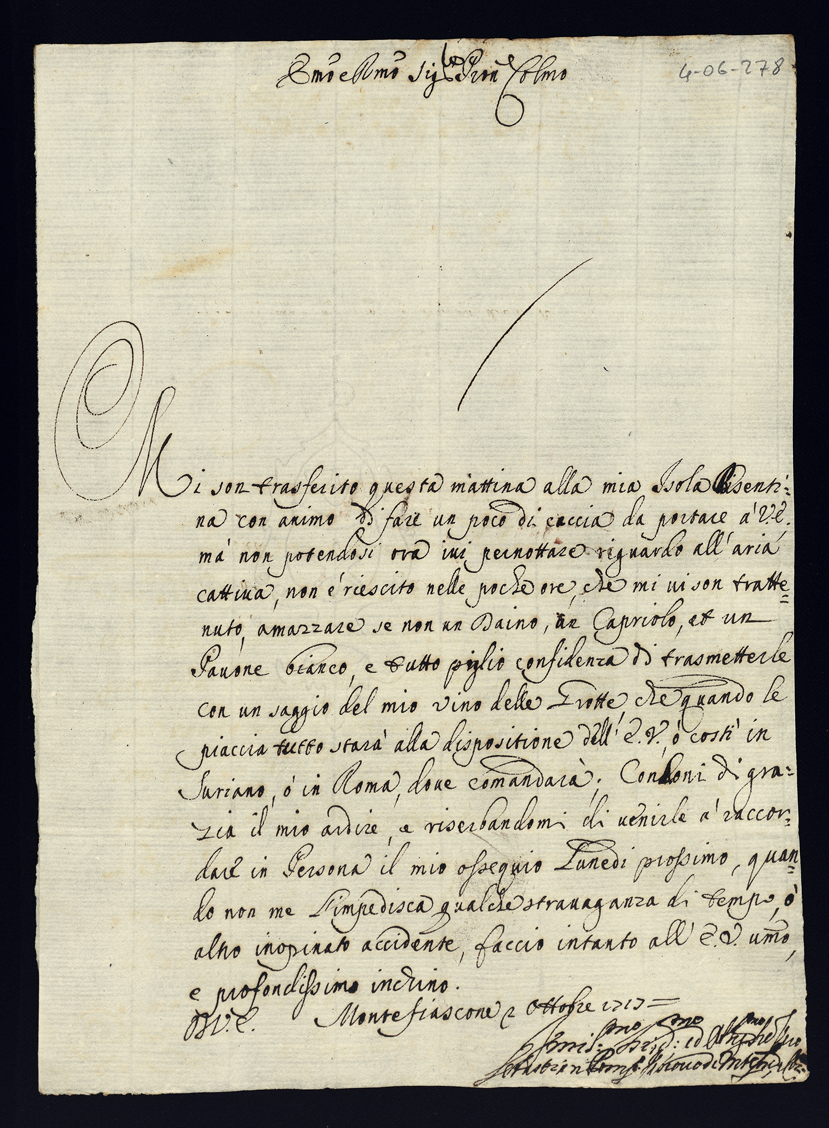 Emo e Rmo Sig.re Pron.e Colmo
4-06-278
Mi son trasferito questa mattina alla mia Isola Bisenti=
na con animo di fare un poco di caccia da portare à V.E.
mà non potendosi ora ivi pernottare riguardo all'aria
cattiva, non è riescito nelle poche ore, che mi vi son tratte=
nuto, amazzare se non un Daino, un Capriolo, et un
Pavone bianco, e tutto piglio confidenza di trasmetterle
con un saggio del mio vino delle Grotte, che quando le
piaccia tutto starà alla dispositione dell'E.V. ò costì in
Suriano, ò in Roma, dove comandarà; Condoni di gra=
zia il mio ardire, e riserbandomi di venirle à raccor=
dare in Persona il mio ossequio Lunedi prossimo, quan=
do non me l'impedisca qualche stravaganza di tempo, ò
altro inopinato accidente, faccio intanto all'E.V. umo,
e profondissimo inchino.
D.V.E. Montefiascone 2 Ottobre 1717=
Vmil.mo
Sebastiano Vescovo di